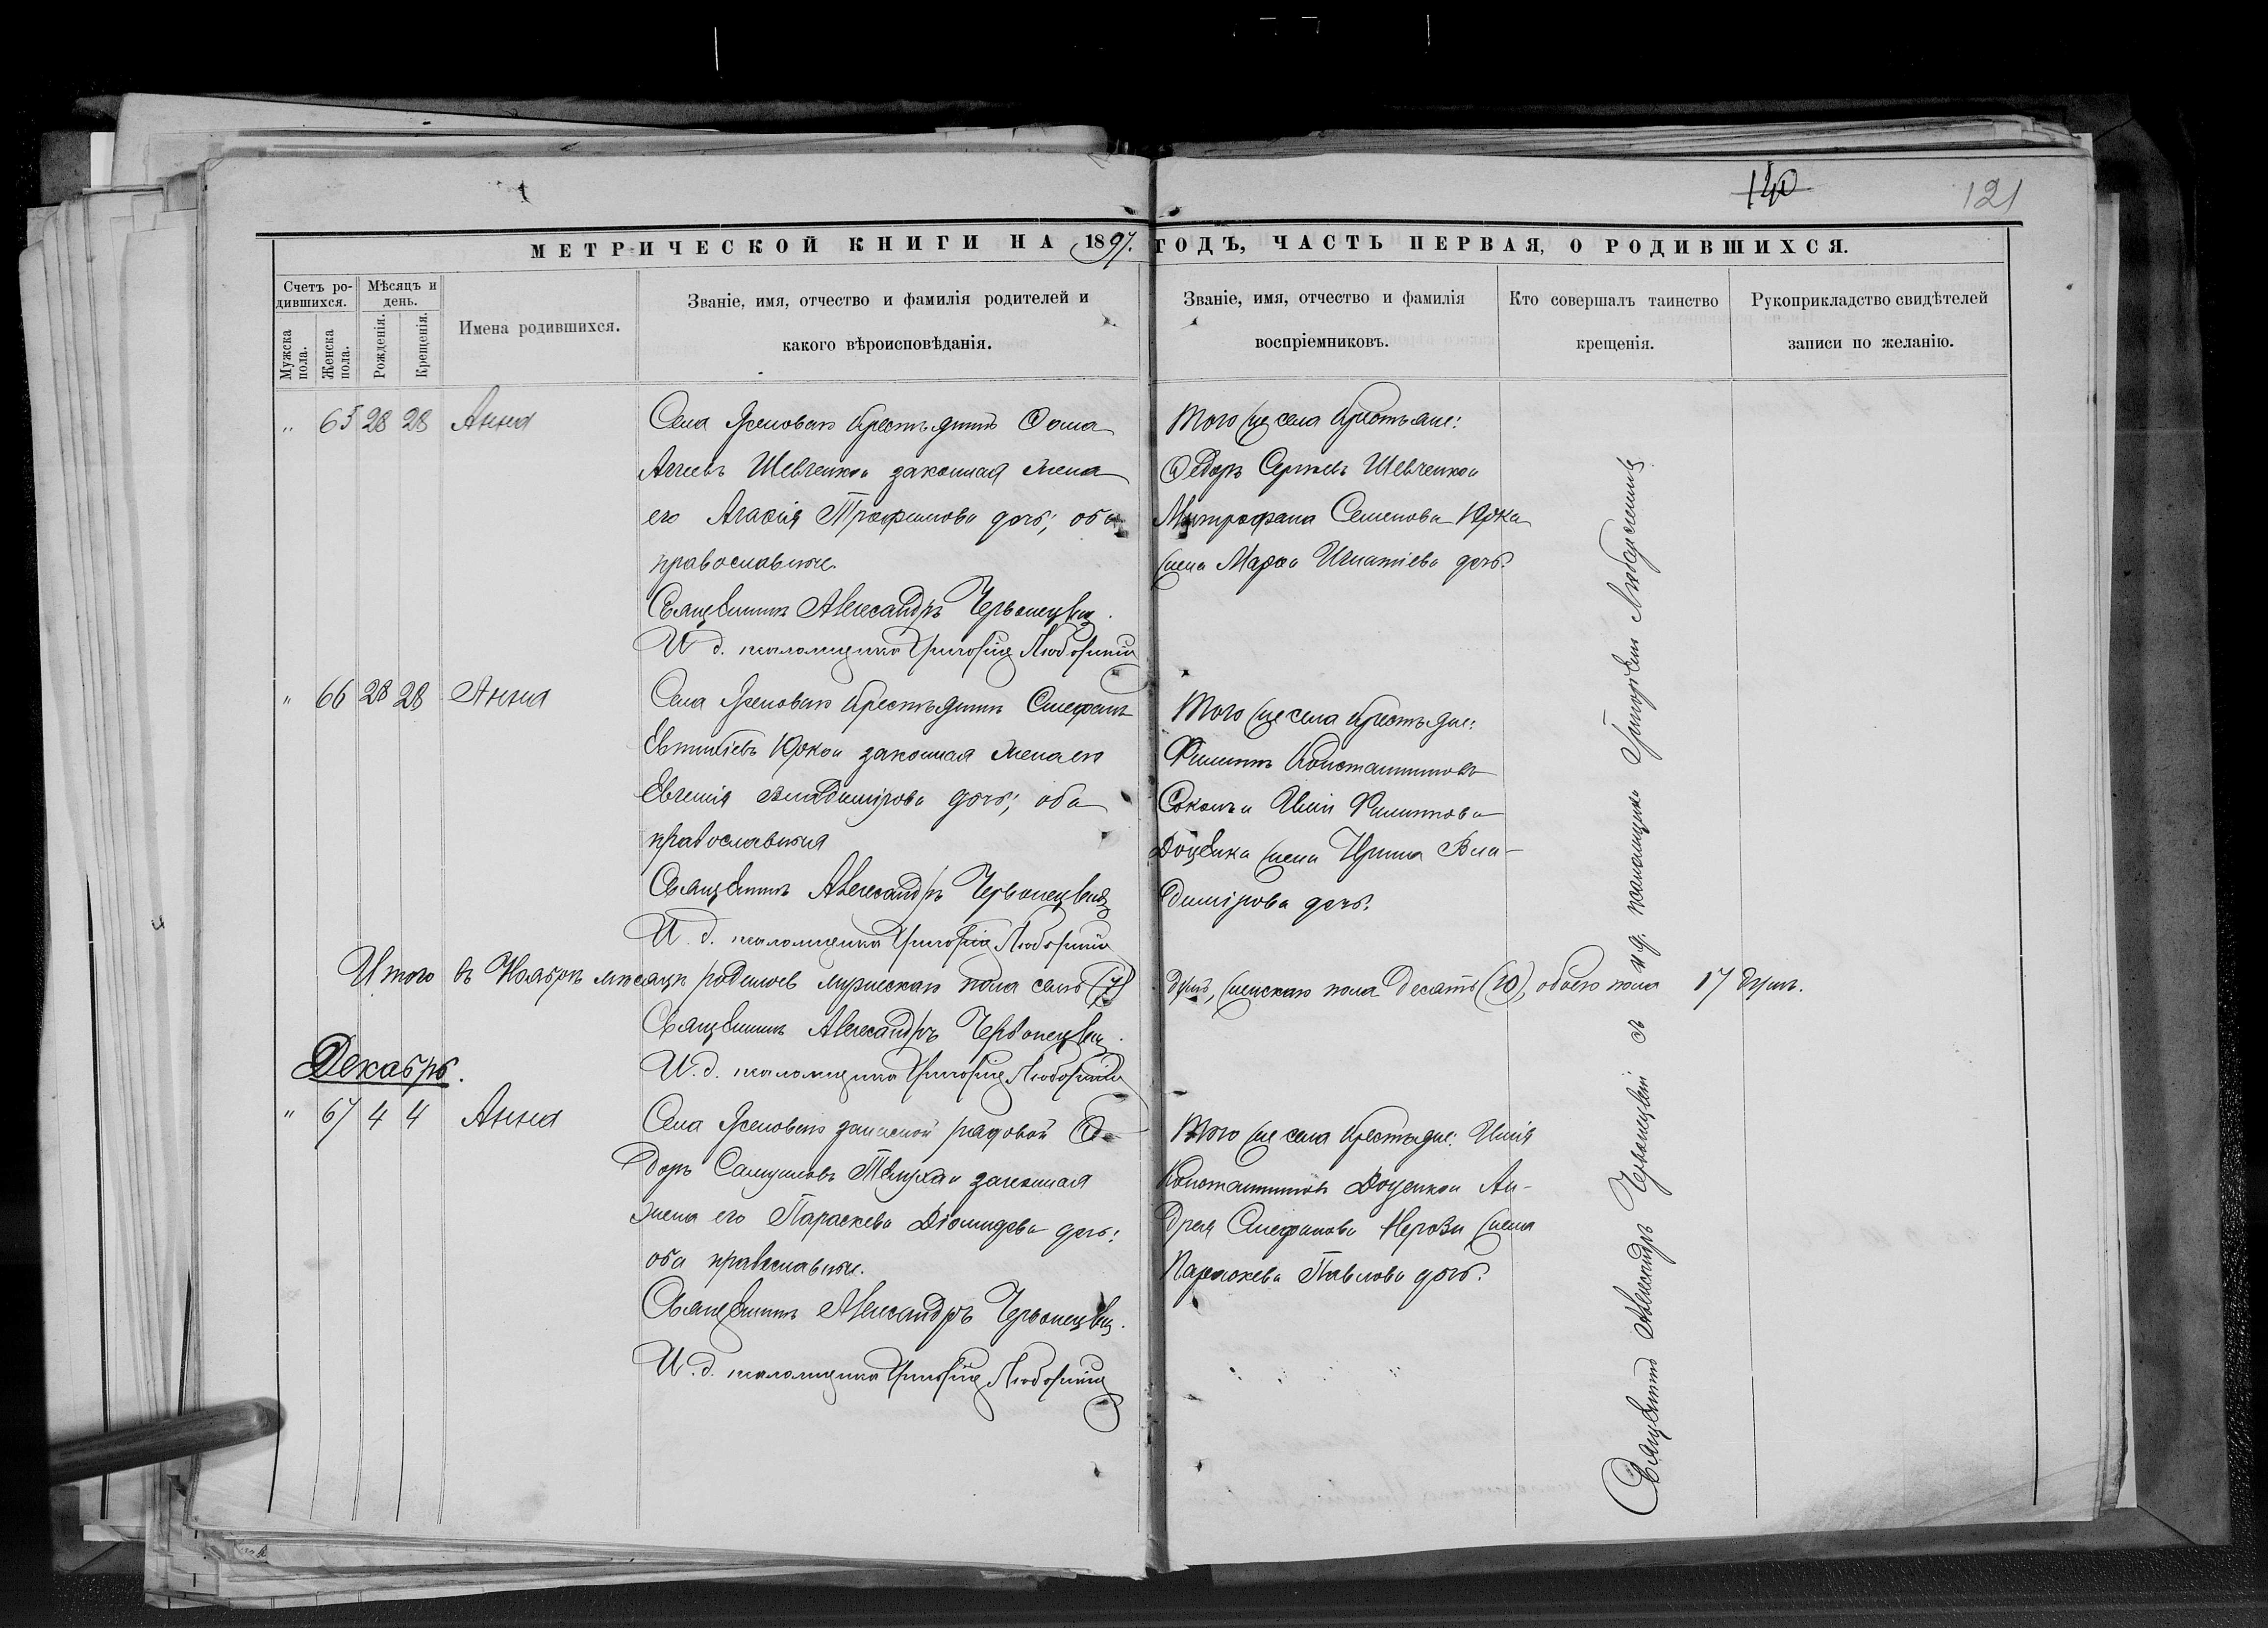 140
121
МЕТРИЧЕСКОЙ КНИГИ НА 1897. ГОДЪ, ЧАСТЬ ПЕРВАЯ, О РОДИВШИХСЯ.
Счетъ ро-
дившихся.
Мужска
пола.
Женска
пола.
Мѣсяцъ и
день.
Рожденія.
Крещенія.
Имена родившихся.
Званіе, имя, отчество и фамилія родителей и
какого вѣроисповѣданія.
Званіе, имя, отчество и фамилія
воспріемниковъ.
Кто совершалъ таинство
крещенія.
Рукоприкладство свидѣтелей
записи по желанію.
" 65 28 28 Анна
Села крестьянинъ Ѳома
Аггеевъ Шевченко и законная жена
его Агаѳія Трофимова дочь; оба
православные.
Священникъ Александръ Червонецкій.
И. д. псаломщика Григорій
Того же села крестьяне:
Ѳедоръ Сергѣевъ Шевченко и
Митрофана Семенова Юрка
жена Марѳа Игнатіева дочь.
" 66 28 28 Анна
Села крестьянинъ Стефанъ
Евтихіевъ Юрко и законная жена его
Евгенія Владимірова дочь; оба
православныя
Священникъ Александръ Червонецкій
И. д. псаломщика Григорій
Того же села крестьяне:
Филиппъ Константиновъ
Соколъ и Іліи Филиппова
Доценка жена Ирина Вла-
димірова дочь.
Итого въ Ноябрѣ мѣсяцѣ родилось мужескаго пола семь (7) душъ, женскаго пола десять (10), обоего пола 17 душъ.
Священникъ Александръ Червонецкій.
И. д. псаломщика Григорій
Декабрь.
" 67 4 4 Анна
Села запасной рядовой Ѳе-
доръ Самуиловъ и законная
жена его Параскева Діомидова дочь;
оба православные.
Священникъ Александръ Червонецкій.
И. д. псаломщика Григорій
Того же села крестьяне: Илія
Константиновъ Доценко и Ан-
дрея Стефанова жена
Параскева Павлова дочь.
Священникъ Александръ Червонецкій съ и. д. псаломщика Григоріемъ